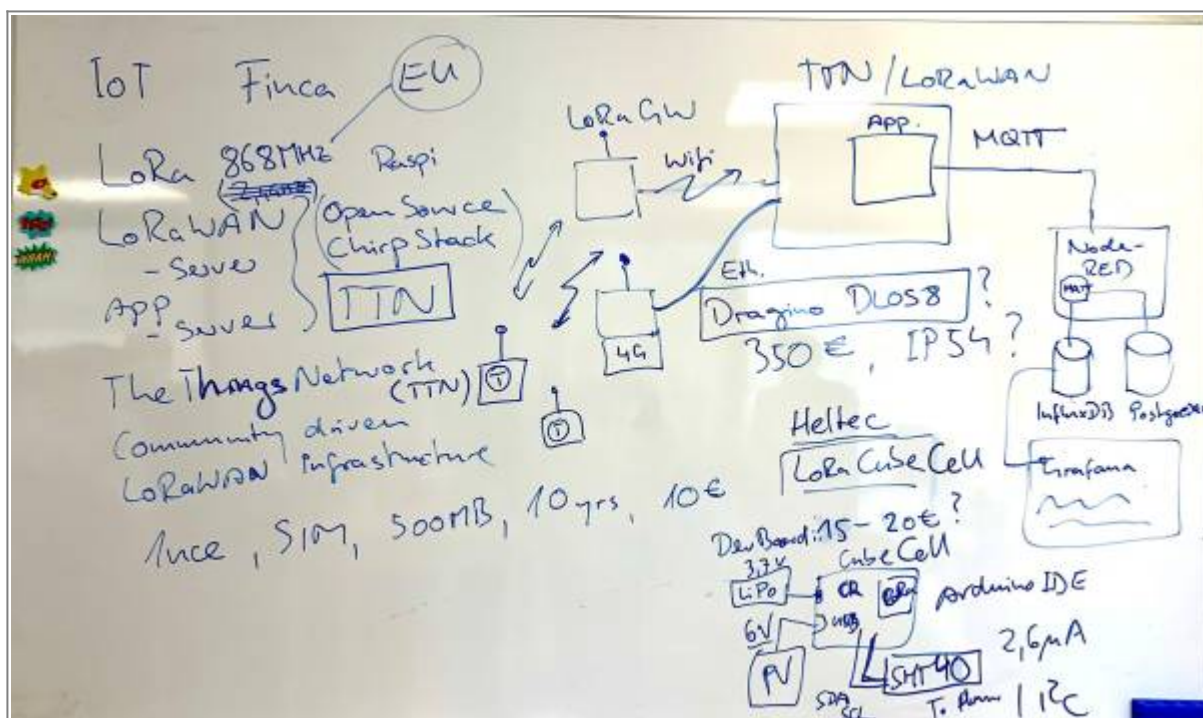 IoT Finca EU
LoRa 868MHz Raspi
LoRaWAN
- Server
App
- Server
(Open Source
ChirpStack)
TTN
The Things Network
(TTN)
Community driven
LoRaWAN Infrastructure
1nce, SIM, 500MB, 10yrs, 10€
LoRa GW
Wifi
4G
T
T
TTN/LoRaWAN
App.
MQTT
Eth.
Dragino DLOS8 ?
350€, IP54?
Node-
RED
InfluxDB
Grafana
Heltec
LoRa CubeCell
DevBoard: 15-20€?
CubeCell
3,7V
LiPo
6V
PV
USB
Arduino IDE
SHT40
2,6µA
SDA
SCL
I²C